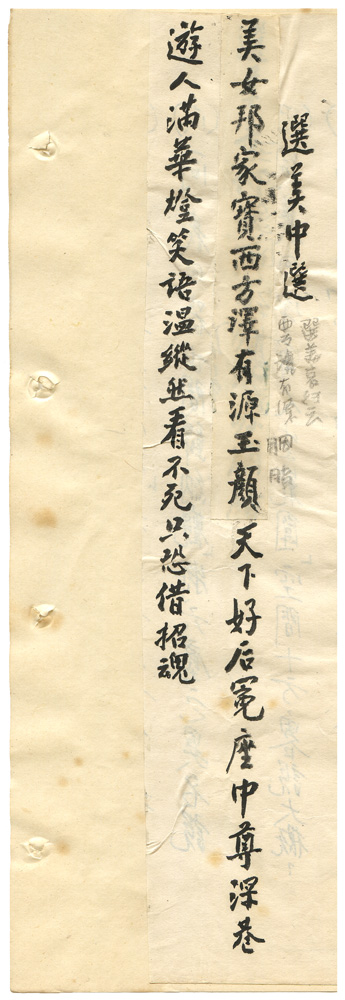 選美中選
美女邦家寶西方澤有源玉顏天下好后冕座中尊深巷
遊人滿華燈笑語温縱然看不死只恐借招魂